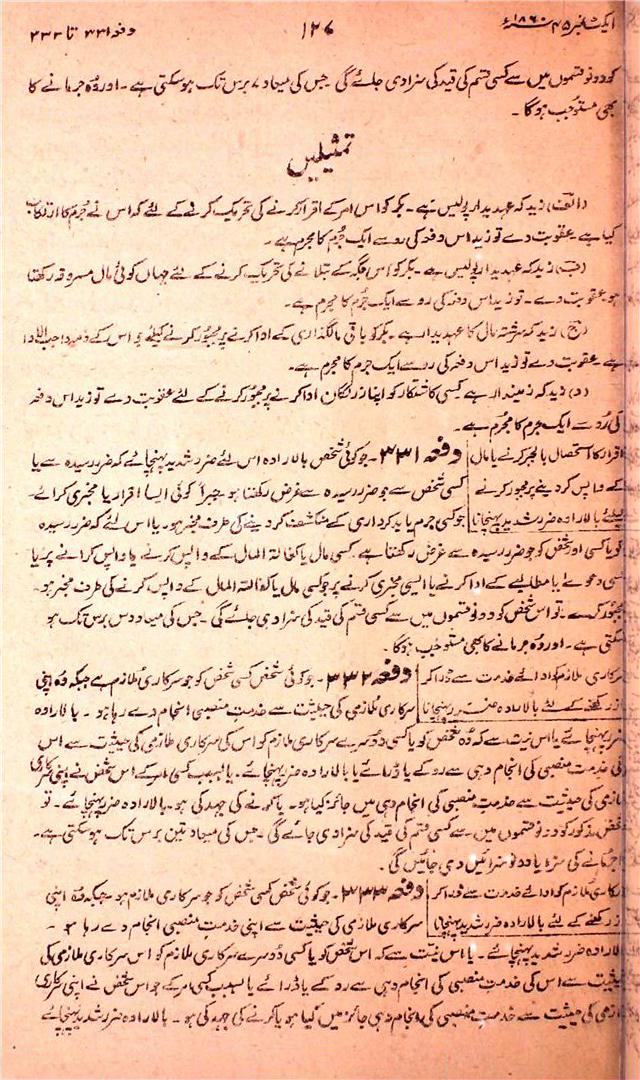 ایکٹ نمبر ۴۵ ۱۸۶۰ء
۱۲۶
دفعہ ۳۳۱ تا ۳۳۳
کو دونو قسموں میں سے کسی قسم کی قید کی سزا دی جائے گی جس کی میعاد ۷ برس تک ہوسکتی ہے ۔ اور وُہ جرمانے کا
بھی مستوجُب ہوگا ۔
تمثیلیں
(الف) زید کہ عہدیدار پولیس ہے ۔ بکر کو اس امر کے اقرار کرنے کی تحریک کرنے کے لئے کہ اس نے جُرم کا ارتکاب
کیا ہے عقوبت دے تو زید اس دفعہ کی روسے ایک جُرم کا مجرم ہے ۔
(ب) زید کہ عہدیدار پولیس ہے ۔ بکر کو اس جگہ کے بتلانے کی تحریک کرنے کے لئے جہاں کوئی مال مسروقہ رکھا
ہو عقوبت دے ۔ تو زید اس دفعہ کی رو سے ایک جُرم کا مجرم ہے ۔
(ج) زید کہ سرشتہ مال کا عہدیدار ہے ۔ بکر کو باقی مالگذاری کے ادا کرنے پر مجبور کرنے کیلئے جو اس کے ذمہ واجب الادا
ہے عقوبت دے تو زید اس دفعہ کی رو سے ایک جرم کا مجرم ہے ۔
(د) زید کہ زمیندار ہے کسی کاشتکار کو اپنا زر لگان ادا کرنے پر مجبُور کرنے کے لئے عقوبت دے تو زید اس دفعہ
کی رُو سے ایک جرم کا مجُرم ہے ۔
اقرار کا استحصال بالجبر کرنے یا مال
کے واپس کر دینے پر مجبور کرنے
کیلئے بالارادہ ضرر شدید پہنچانا
دفعہ ۳۳۱ ۔ جو کوئی شخص بالارادہ اس لئے ضرر شدید پہنچائے کہ ضرر رسیدہ سے یا
کسی شخص سے جو ضرر رسیدہ سے غرض رکھتا ہو جبراً کوئی ایسا اقرار یا مخبری کرائے
جو کسی جرم یا بد کرداری کے منکشف کر دینے کی طرف منجر ہو ۔ یا اس لئے کہ ضرر رسیدہ
کو یا کسی اور شخص کو جو ضرر رسیدہ سے غرض رکھتا ہے کسی مال یا کفالۃ المال کے واپس کرنے یا واپس کرانے پر یا
کسی دعوے یا مطالبے کے ادا کرنے یا ایسی مخبری کرنے پر جو کسی مال یا کفالۃ المال کے واپس کرنے کی طرف منجر ہو ۔
مجبُور کرے ۔ تو اس شخص کو دونو قسموں میں سے کسی قسم کی قید کی سزا دی جائے گی ۔ جس کی میعاد دس برس تک ہو
سکتی ہے ۔ اور وُہ جرمانے کا بھی مستوجُب ہوگا ۔
سرکاری ملازم کو ادائے خدمت سے ڈرا کر
باز رکھنے کے لئے بالارادہ ضرر پہنچانا
دفعہ ۳۳۲ ۔ جو کوئی شخص کسی شخص کو جو سرکاری ملازم ہے جبکہ وُہ اپنی
سرکاری ملازمی کی حیثیت سے خدمت منصبی انجام دے رہا ہو ۔ بالارادہ
ضرر پہنچائے یا اس نیت سے کہ وُہ شخص کو یا کسی دُوسرے سرکاری ملازم کو اس کی سرکاری ملازمی کی حیثیت سے اس
کی خدمت منصبی کی انجام دہی سے روکے یا ڈرائے یا بالارادہ ضرر پہنچائے ۔ یا بسبب کسی امر کے جو اس شخص نے اپنی سرکاری
ملازمی کی حیثیت سے خدمت منصبی کی انجام دہی میں جائز کیا ہو ۔ یا کرنے کی جہد کی ہو ۔ بالارادہ ضرر پہنچائے ۔ تو
شخص مذکور کو دونو قسموں میں سے کسی قسم کی قید کی سزا دی جائے گی ۔ جس کی میعاد تین برس تک ہوسکتی ہے ۔
یا جرمانے کی سزا یا دونو سزائیں دی جائیں گی ۔
سرکاری ملازم کو ادائے خدمت سے ڈرا کر
باز رکھنے کے لئے بالارادہ ضرر شدید پہنچانا
دفعہ ۳۳۳ ۔ جو کوئی شخص کسی شخص کو جو سرکاری ملازم ہو ۔ جبکہ وُہ اپنی
سرکاری ملازمی کی حیثیت سے اپنی خدمتِ منصبی انجام دے رہا ہو ۔
بالارادہ ضرر شدید پہنچائے ۔ یا اس نیت سے کہ اس شخص کو یا کسی دُوسرے سرکاری ملازم کو اس سرکاری ملازمی کی
حیثیت سے اس کی خدمتِ منصبی کی انجام دہی سے روکے یا ڈرائے یا بسبب کسی امر کے جو اس شخص نے اپنی سرکاری
ملازمی کی حیثیت سے خدمت منصبی کی انجام دہی جائز میں کیا ہو یا کرنے کی جہد کی ہو ۔ بالارادہ ضرر شدید پہنچائے